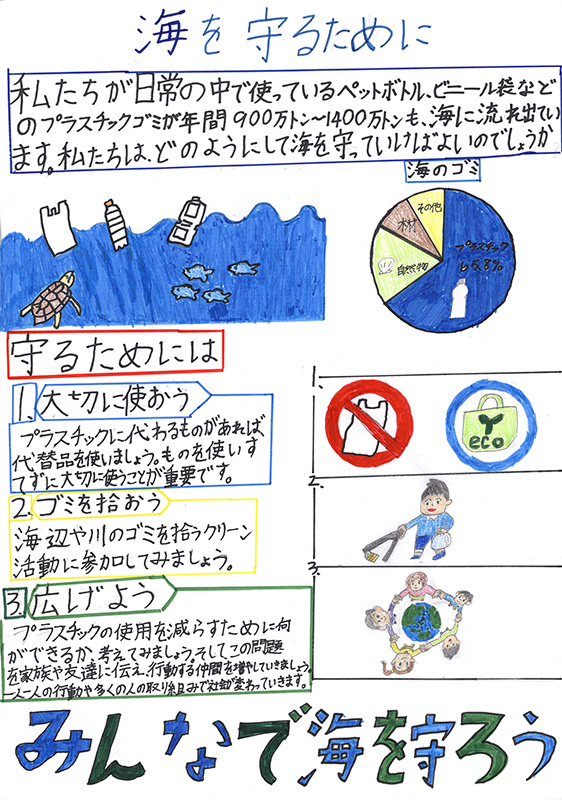 海を守るために
私たちが日常の中で使っているペットボトル、ビニール袋など
のプラスチックゴミが年間900万トン〜1400万トンも、海に流れ出てい
ます。私たちは、どのようにして海を守っていけばよいのでしょうか
海のゴミ
その他
木材
自然物
プラスチック
65.8%
守るためには
1. 大切に使おう
プラスチックに代わるものがあれば
代替品を使いましょう。ものを使いす
てずに大切に使うことが重要です。
2. ゴミを拾おう
海辺や川のゴミを拾うクリーン
活動に参加してみましょう。
3. 広げよう
プラスチックの使用を減らすために何
ができるか、考えてみましょう。そしてこの問題
を家族や友達に伝え、行動する仲間を増やしていきましょう。
一人一人の行動や多くの人の取り組みで社会が変わっていきます。
1.
eco
2.
3.
みんなで海を守ろう